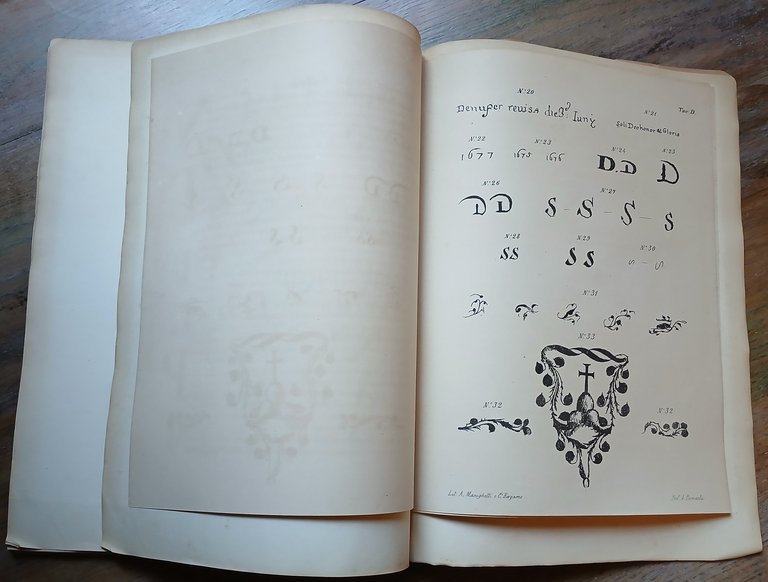 N.º 20
Denuper revisa die 3? Iunÿ
N.º 21
Tav. D.
Soli Deo honor et Gloria
N.º 22
1677
N.º 23
1675 1676
N.º 24
D.D
N.º 25
D
N.º 26
D D
N.º 27
S - S - S - S
N.º 28
SS
N.º 29
S S
N.º 30
S - S
N.º 31
N.º 33
N.º 32
N.º 32
Lit. A. Maneghetti e C. Bergamo